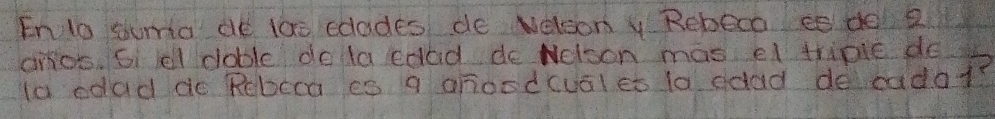 En la suma de las edades de Nelson y Rebeca es de 2
años. Si el doble de la edad de Nelson más el triple de
la edad de Rebeca es 9 años d cuál es la edad de cada 1?